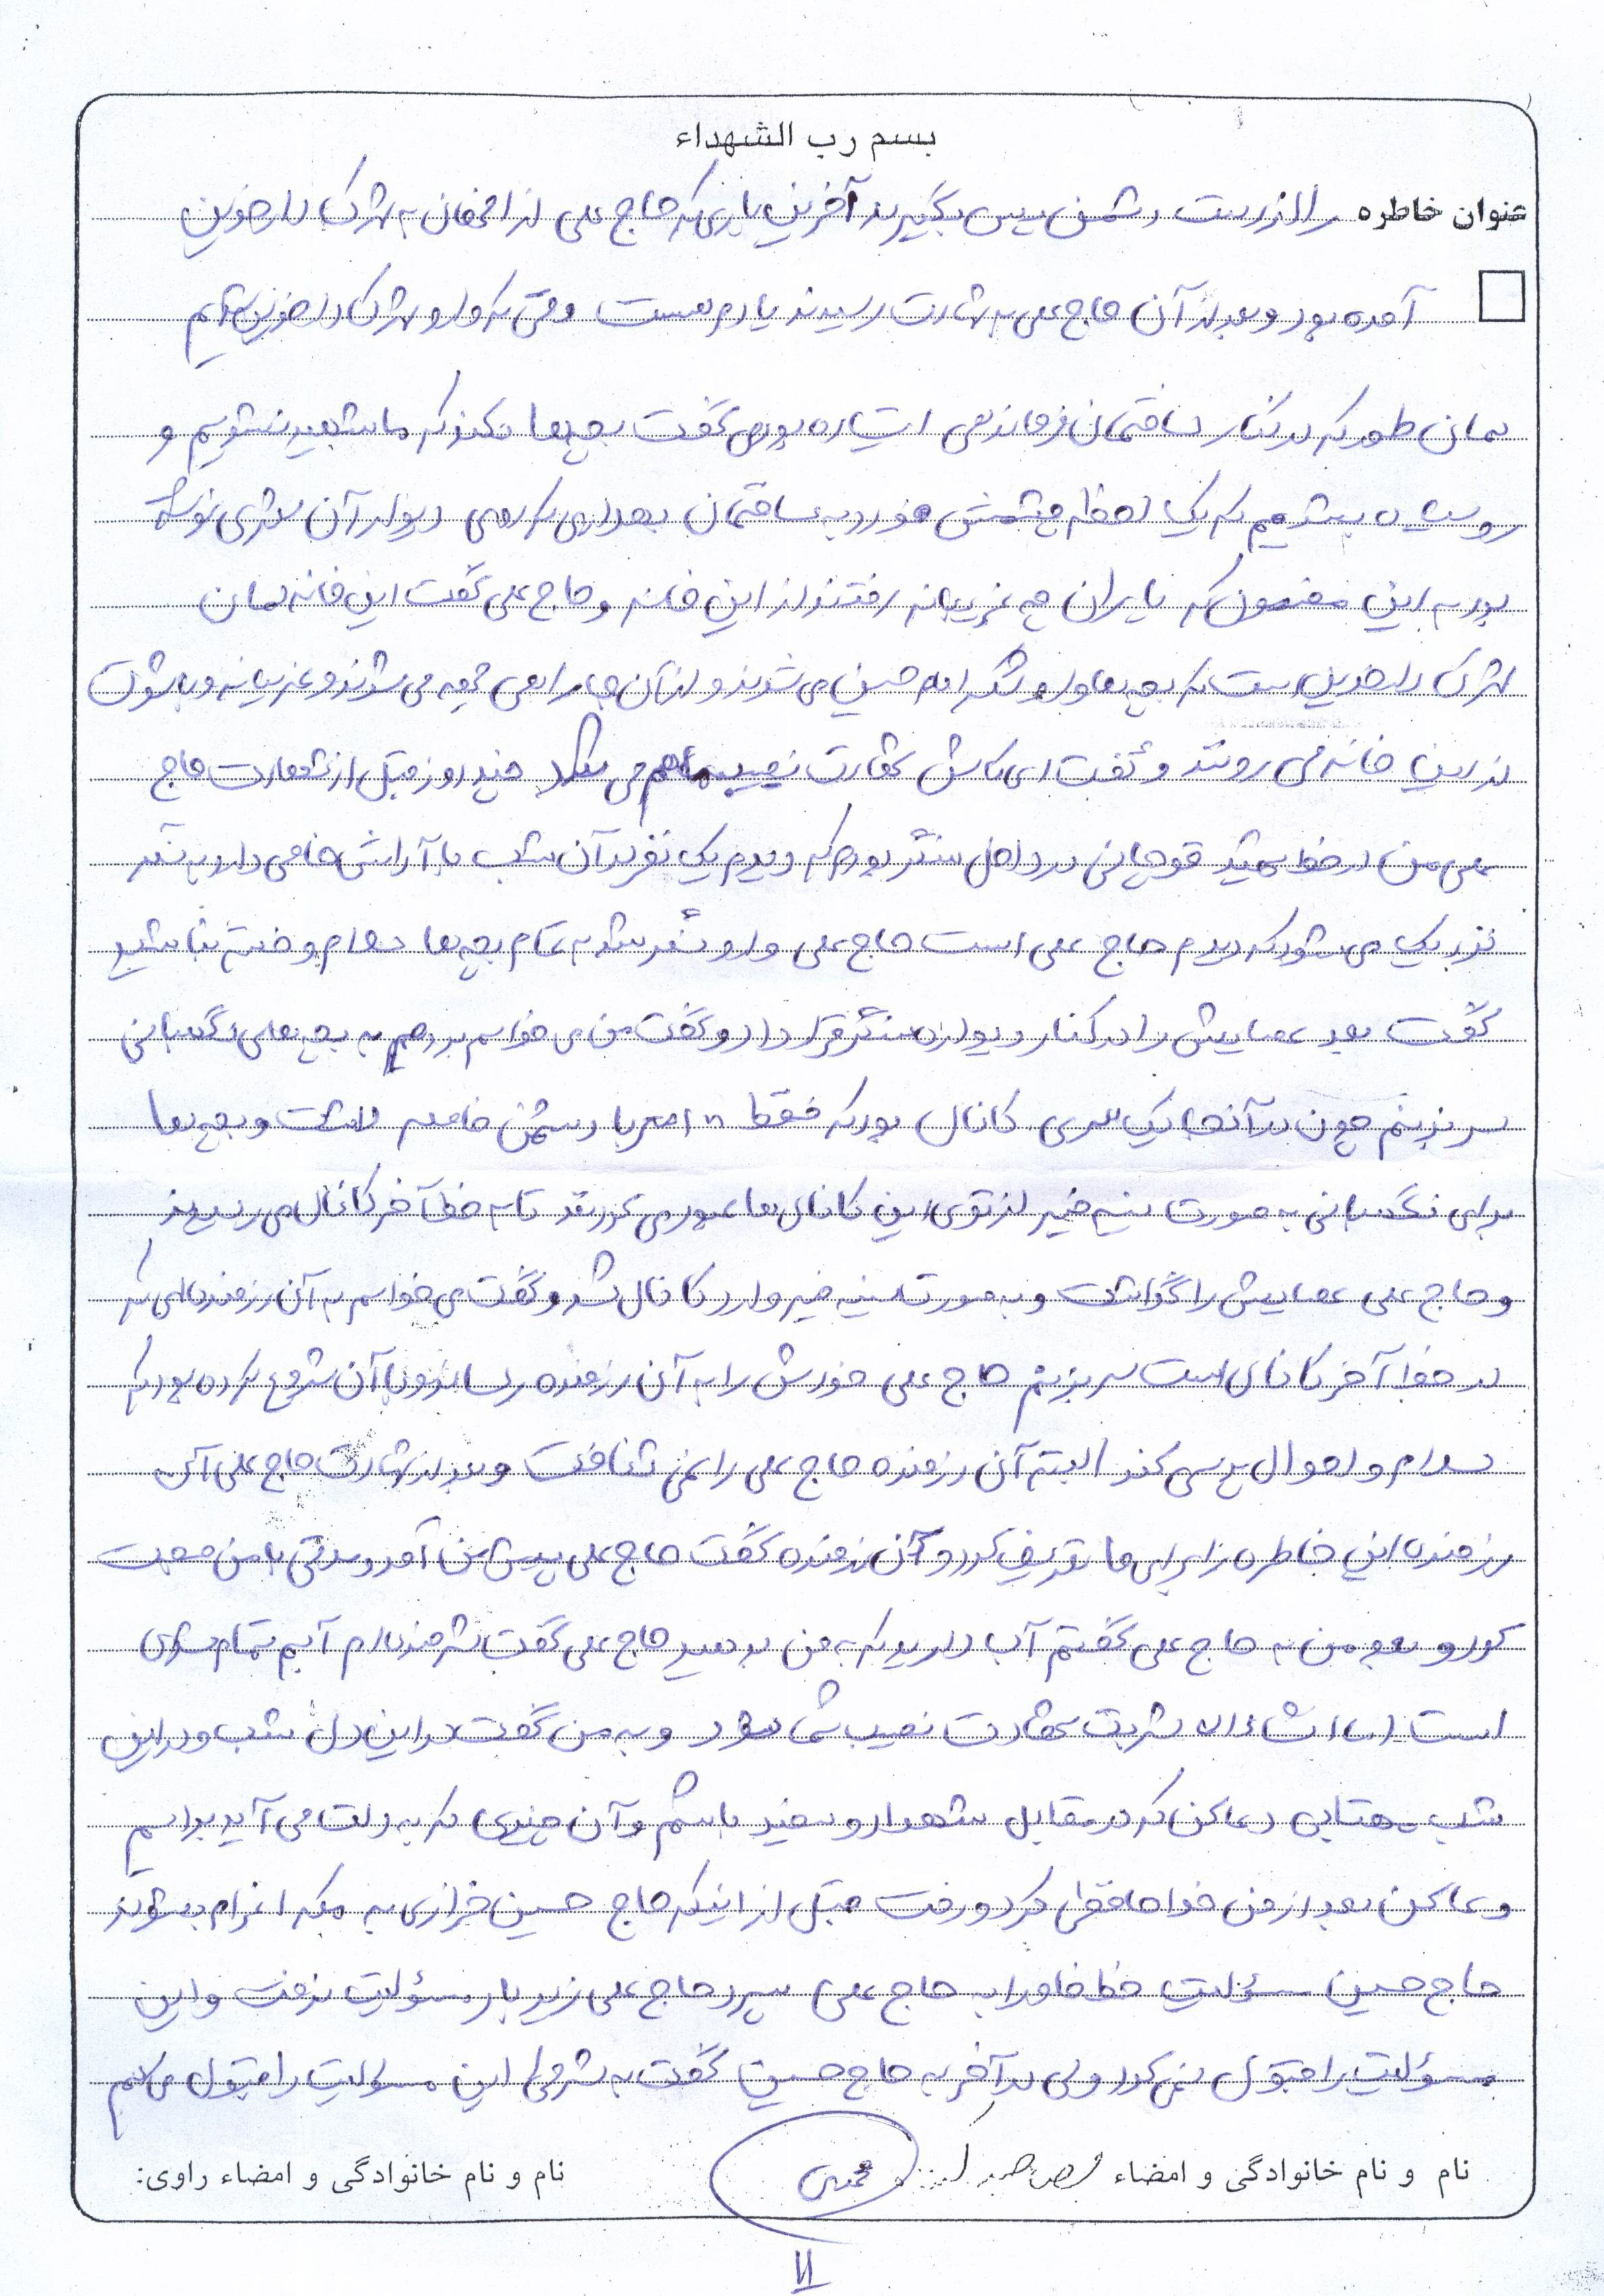 بسم رب الشهداء
عنوان خاطره را از دست دشمن پس بگیرید آخرین باری که حاج علی از به شهرک دارخوین
آمده بود و بعد از آن حاج علی به شهادت رسیدند یادم هست وقتی که وارد شهرک دارخوین شدیم
همان طور که در کنار ساختمان فرماندهی ایستاده بودیم گفت بچه‌ها نکند که ما شهید نشویم و
روسیاه بشویم که یک لحظه چشمش خورد به ساختمان بهداری که روی دیوار آن شعری نوشته
بود به این مضمون که یاران چه غریبانه رفتند از این خانه و حاج علی گفت این خانه همان
شهرک دارخوین است که بچه‌ها وارد لشکر امام حسین می شوند و از آن جا راهی جبهه می شوند و غریبانه و با شهادت
از این خانه می روند و گفت ای کاش شهادت نصیب ما هم می شد چند روز قبل از شهادت حاج
علی من در خط شهید قوچانی در داخل سنگر بودم که دیدم یک نفر در آن شب با آرامش خاصی دارد به سنگر
نزدیک می شود که دیدم حاج علی است حاج علی وارد سنگر شد به تمام بچه‌ها سلام و خسته نباشید
گفت بعد عصایش را در کنار دیواره سنگر قرار داد و گفت من می خواهم بروم به بچه‌های نگهبانی
سر بزنم چون در آنجا یک سری کانال بود که فقط متر با دشمن فاصله داشت و بچه‌ها
برای نگهبانی به صورت سینه خیز از توی این کانال‌ها عبور می کردند تا به خط آخر کانال می رسیدند
و حاج علی عصایش را گذاشت و به صورت سینه خیز وارد کانال شد و گفت می خواهم به آن رزمنده‌ای که
در خط آخر کانال است سر بزنم حاج علی خودش را به آن رزمنده رساند و با آن شروع کرده بود که
سلام و احوال پرسی کند البته آن رزمنده حاج علی را نمی شناخت و بعد از شهادت حاج علی آن
رزمنده این خاطره را برای ما تعریف کرد و آن رزمنده گفت حاج علی پیش من آمد و مدتی با من صحبت
کرد و بعد من به حاج علی گفتم آب دارید که به من بدهید حاج علی گفت شرمنده‌ام آبم تمام شده
است اما انشاءالله شربت شهادت نصیب شما شود و به من گفت در این دل شب و در این
شب مهتابی دعا کن که در مقابل شهدا رو سفید باشم و آن چیزی که به دلت می آید برایم
دعا کن بعد از من خداحافظی کرد و رفت قبل از اینکه حاج حسین خرازی به مکه اعزام بشوند
حاج حسین مسئولیت خط فاو را به حاج علی سپرد حاج علی زیر بار مسئولیت نرفت و این
مسئولیت را قبول نمی کرد ولی در آخر به حاج حسین گفت به شرطی این مسئولیت را قبول می کنم
نام و نام خانوادگی و امضاء
نام و نام خانوادگی و امضاء راوی: